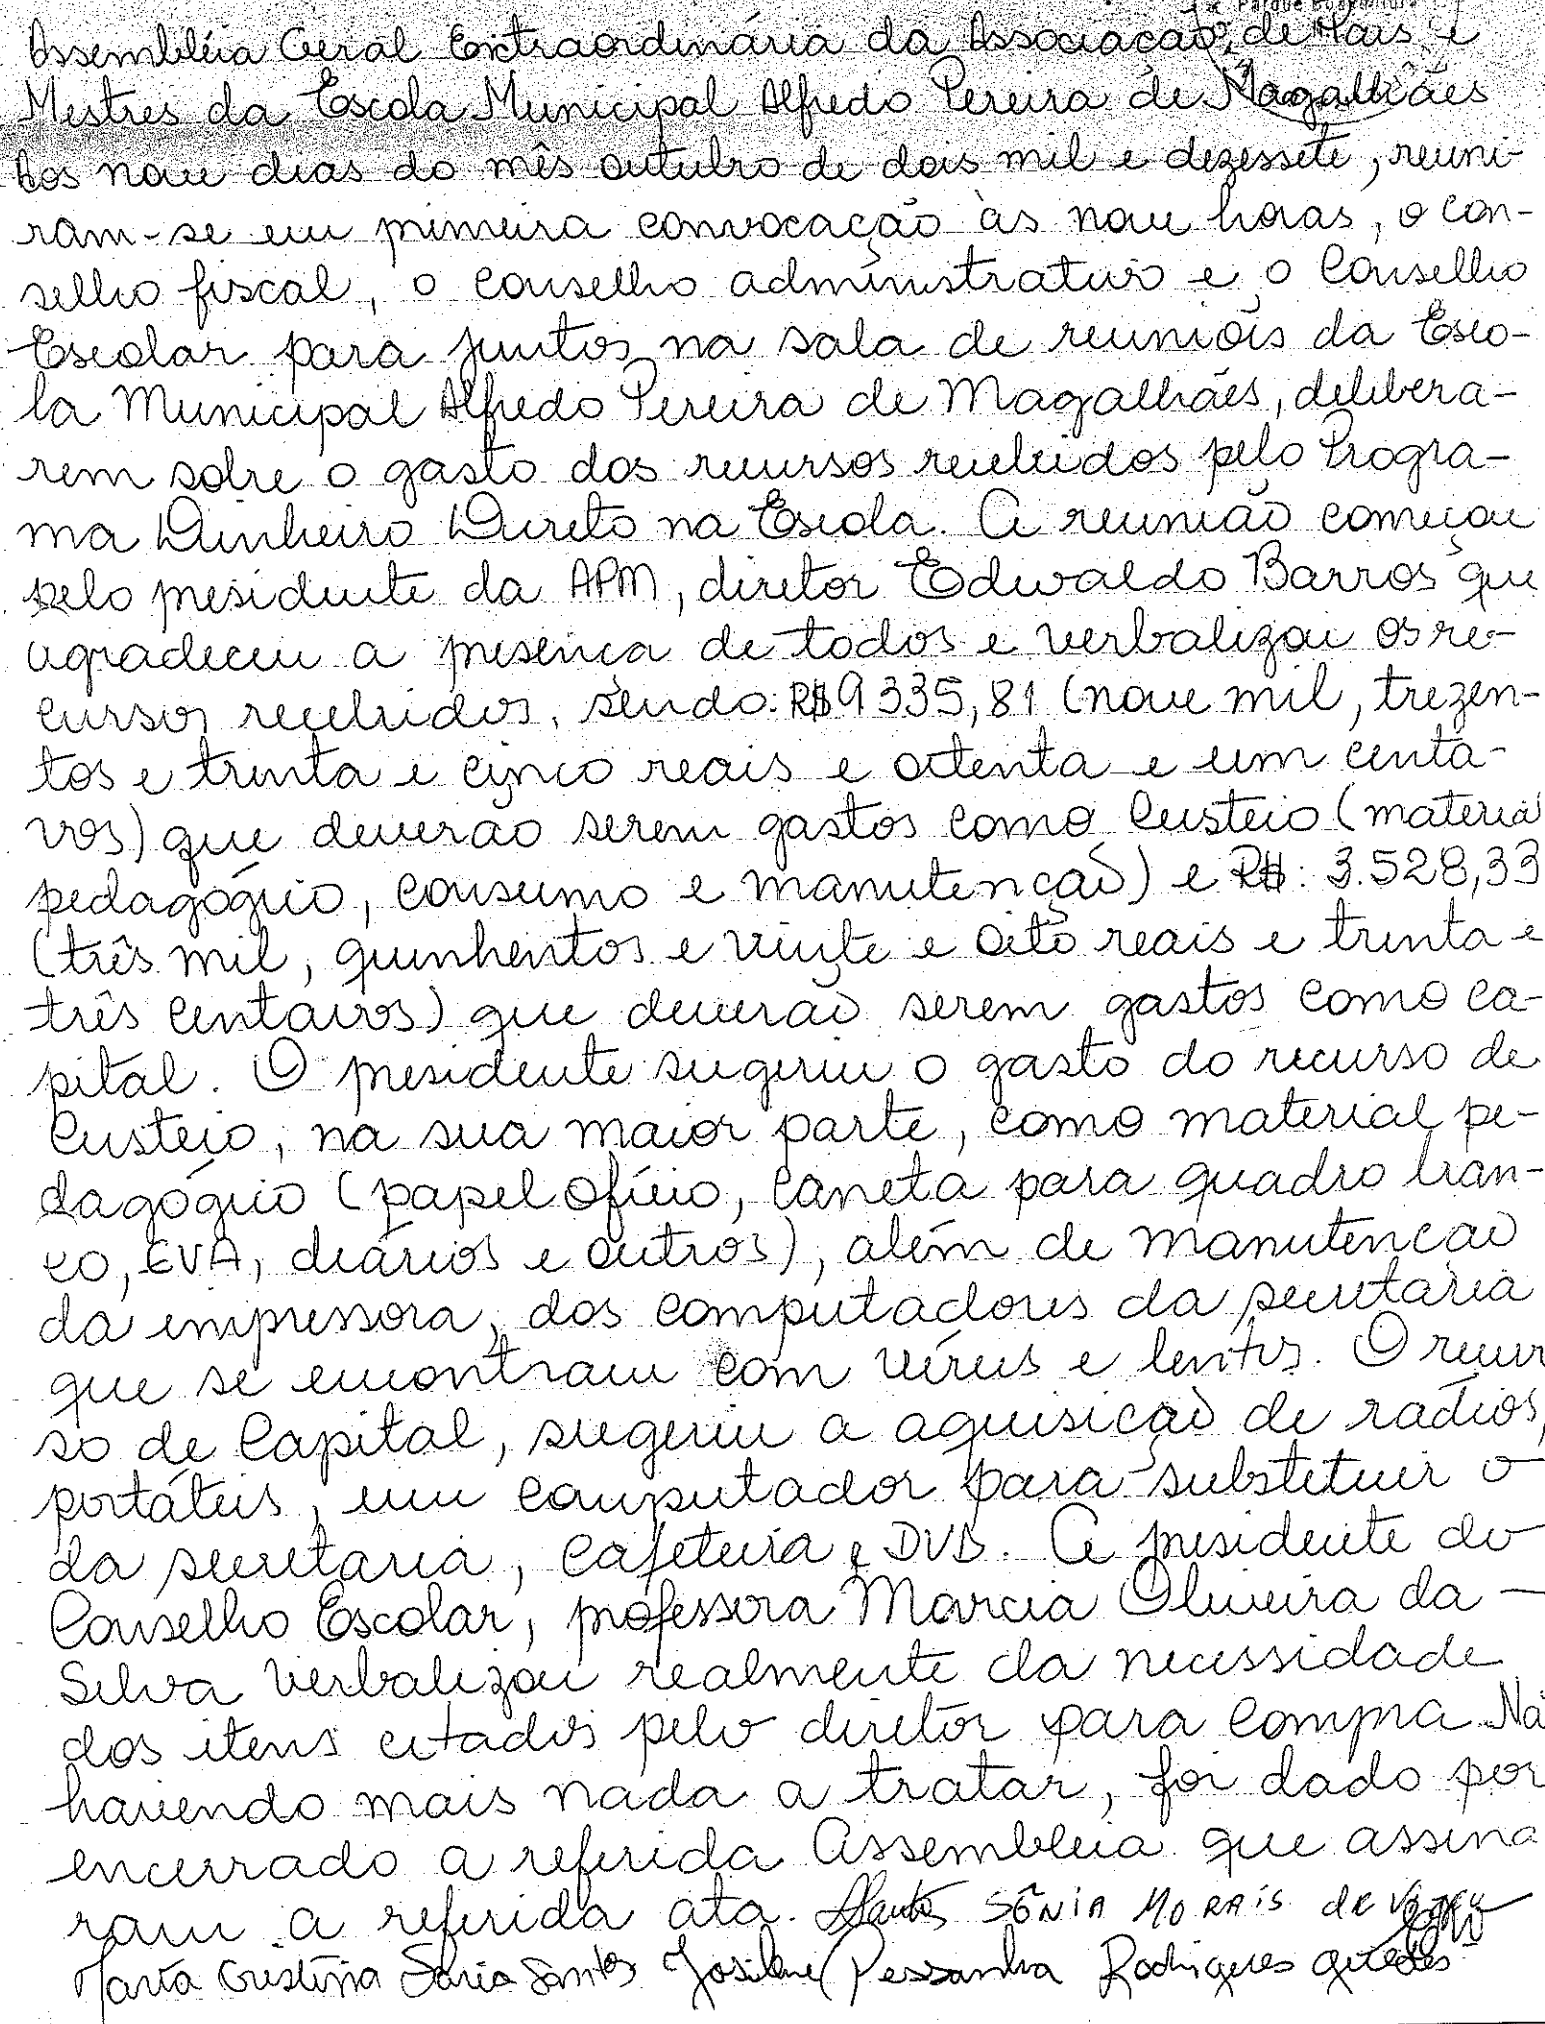 Parque Equitativa
Assembléia Geral Extraordinária da Associação de Pais e
Mestres da Escola Municipal Alfredo Pereira de Magalhães
Aos nove dias do mês outubro de dois mil e dezessete, reuni-
ram-se em primeira convocação às nove horas, o con-
selho fiscal, o conselho administrativo e o Conselho
Escolar para juntos na sala de reuniões da Esco-
la Municipal Alfredo Pereira de Magalhães, delibera-
rem sobre o gasto dos recursos recebidos pelo Progra-
ma Dinheiro Direto na Escola. A reunião começou
pelo presidente da APM, diretor Edwaldo Barros que
agradeceu a presença de todos e verbalizou os re-
cursos recebidos, sendo: R$ 9335,81 (nove mil, trezen-
tos e trinta e cinco reais e oitenta e um centa-
vos) que deverão serem gastos como Custeio (material
pedagógico, consumo e manutenção) e R$: 3.528,33
(três mil, quinhentos e vinte e oito reais e trinta e
três centavos) que deverão serem gastos como ca-
pital. O presidente sugeriu o gasto do recurso de
Custeio, na sua maior parte, como material pe-
dagógico (papel ofício, caneta para quadro bran-
co, EVA, diários e outros), além de manutenção
da impressora, dos computadores da secretaria
que se encontram com vírus e lentos. O recur
so de Capital, sugeriu a aquisição de rádios,
portáteis, um computador para substituir o
da secretaria, cafeteira e DVD. A presidente do
Conselho Escolar, professora Marcia Oliveira da —
Silva verbalizou realmente da necessidade
dos itens citados pelo diretor para compra. Nã
havendo mais nada a tratar, foi dado por
encerrado a referida Assembleia que assina
ram a referida ata. SÔNIA MORAIS de
Maria Cristina Faria Santos Josilene Pessanha Rodrigues Guedes